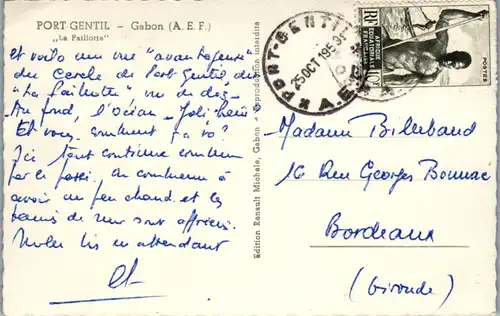 PORT-GENTIL – Gabon (A. E. F.)
„La Paillotte"
Et voilà une vue "avantageuse"
du Cercle de Port-Gentil dit
"La paillotte" vu de dos
Au fond, l'océan - Joli hein
Et vous comment ça va?
Ici tout continue comme
par le passé. On commence à
avoir un peu chaud et les
bains de mer sont appréciés.
en attendant
Edition Renault Michele, Gabon - Reproduction interdite
PORT-GENTIL
25 OCT 195
A.E.F.
RF
AFRIQUE EQUATORIALE FRANÇAISE
10F
POSTES
Madame Billerbaud
16 Rue Georges Bonnac
Bordeaux
(Gironde)